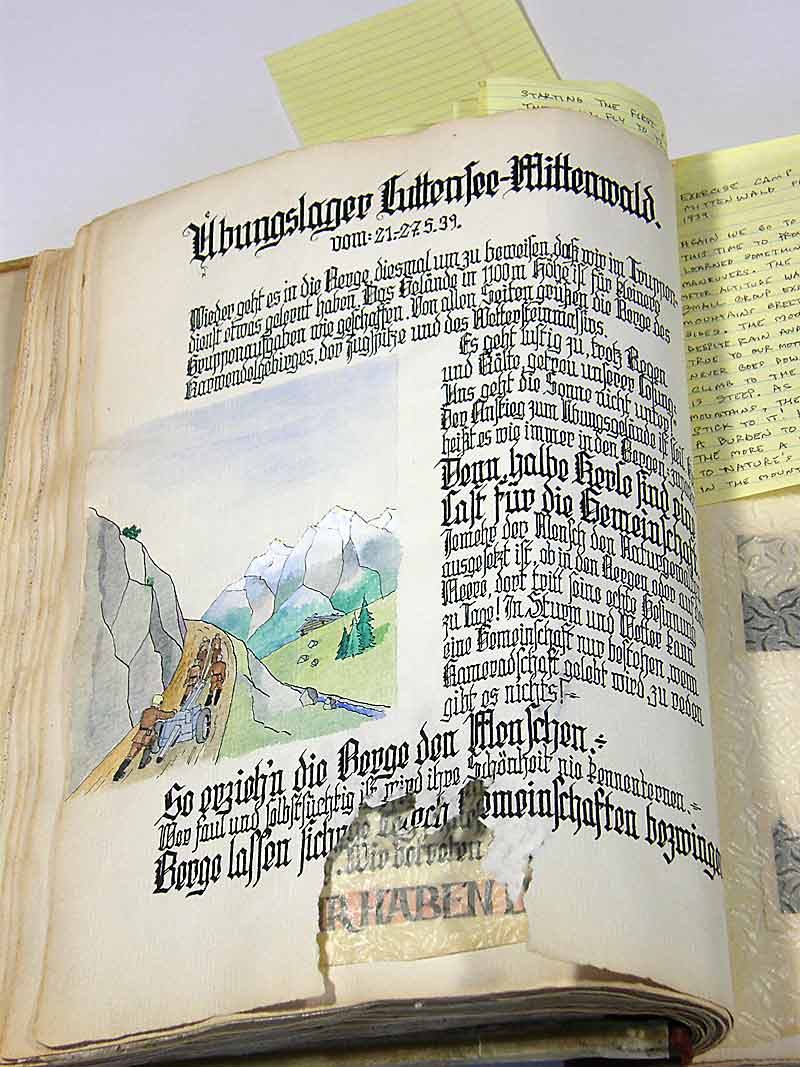 Übungslager Luttensee-Mittenwald.
vom: 21.-27.5.39.
Wieder geht es in die Berge, diesmal um zu beweisen, daß wir im Truppen-
dienst etwas gelernt haben. Das Gelände in 1100 m Höhe ist für kleinere
Gruppenaufgaben wie geschaffen. Von allen Seiten grüßen die Berge des
Karwendelgebirges, der Zugspitze und des Wettersteinmassivs.
Es geht lustig zu, trotz Regen
und Kälte, getreu unserer Losung:
Uns geht die Sonne nicht unter!
Der Anstieg zum Übungsgelände ist steil,
heißt es wie immer in den Bergen:
Denn halbe Kerle sind eine
Last für die Gemeinschaft.
Jemehr der Mensch den Naturgewalten
ausgesetzt ist, ob in den Bergen oder auf dem
Meere, dort tritt seine echte Gesinnung
zu Tage! In Sturm und Wetter kann
eine Gemeinschaft nur bestehen, wenn
Kameradschaft gelebt wird, zu reden
gibt es nichts!
So erzieh'n die Berge den Menschen.
Wer faul und selbstsüchtig ist wird ihre Schönheit nie kennenlernen.
Berge lassen sich Gemeinschaften bezwingen
Wie
HABEN
STARTING THE FIRST
FLY TO
EXERCISE CAMP
MITTENWALD
1939
AGAIN WE GO TO
THIS TIME TO
LEARNED SOMETHING
MANEUVERS. THE
AFTER ALTITUDE WAS
SMALL GROUP
MOUNTAINS GREET
SIDES. THE
DESPITE RAIN AND
TRUE TO OUR
NEVER GOES DOWN
CLIMB TO THE
IS STEEP. AS
MOUNTAINS, THE
STICK TO IT!
A BURDEN TO
THE MORE A
TO NATURE'S
IN THE